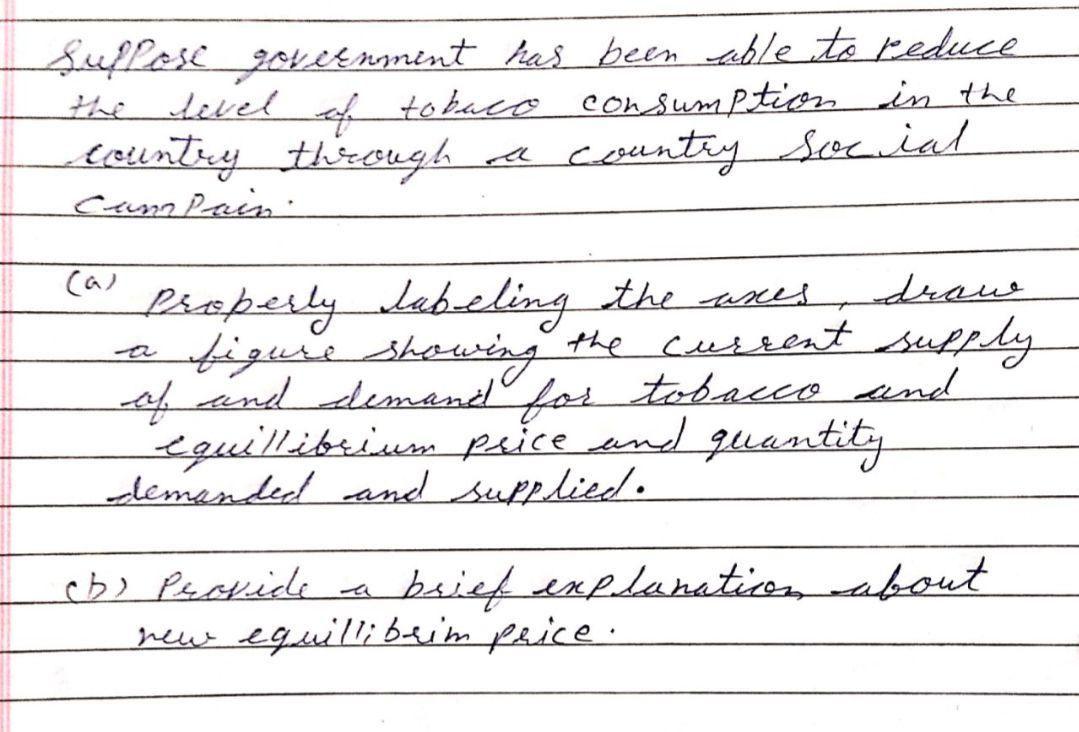 Suppose government has been able to reduce
the level of tobaco consumption in the
country through a country social
campain.
(a) Properly labeling the axes, draw
a figure showing the current supply
of and demand for tobacco and
equillibrium price and quantity
demanded and supplied.
(b) Provide a brief explanation about
new equillibrim price.